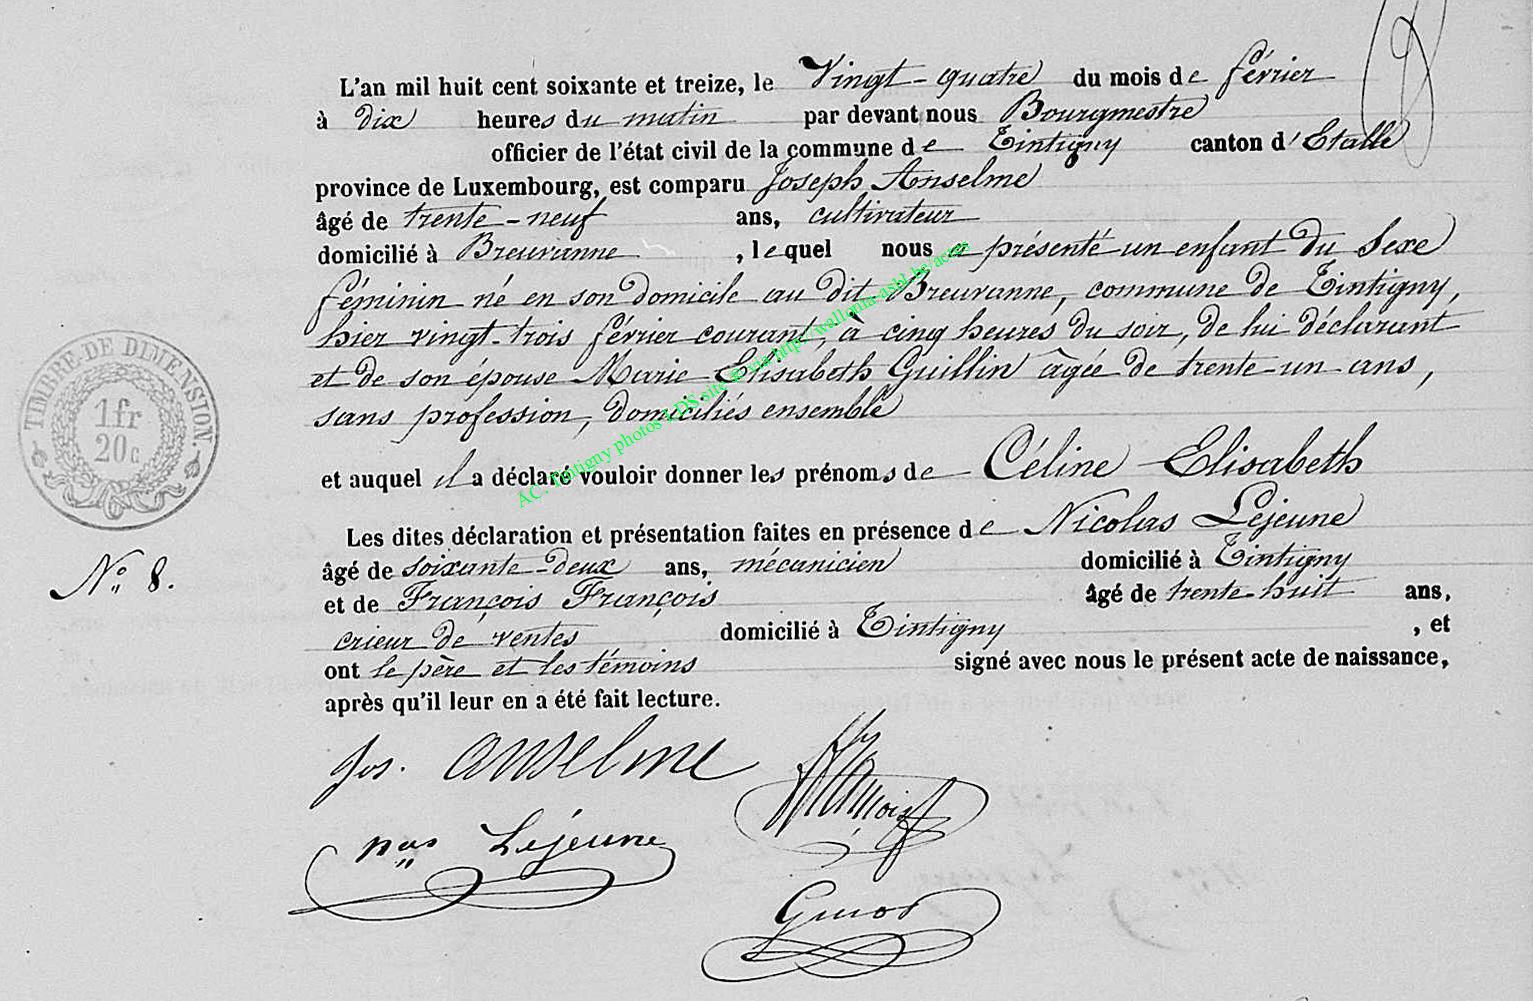 L'an mil huit cent soixante et treize, le Vingt-quatre du mois de février
à dix heures du matin par devant nous Bourgmestre
officier de l'état civil de la commune de Tintigny canton d'Etalle
province de Luxembourg, est comparu Joseph Anselme
âgé de trente-neuf ans, cultivateur
domicilié à Breuvanne, lequel nous a présenté un enfant du Sexe
féminin né en son domicile au dit Breuvanne, commune de Tintigny,
hier vingt-trois février courant, à cinq heures du soir, de lui déclarant
et de son épouse Marie-Elisabeth Guillin âgée de trente-un ans,
sans profession, domiciliés ensemble
et auquel il a déclaré vouloir donner les prénoms de Céline Elisabeth
Les dites déclaration et présentation faites en présence de Nicolas Lejeune
âgé de soixante-deux ans, mécanicien domicilié à Tintigny
et de François François âgé de trente-huit ans,
crieur de ventes domicilié à Tintigny, et
ont le père et les témoins signé avec nous le présent acte de naissance,
après qu'il leur en a été fait lecture.
TIMBRE DE DIMENSION.
1fr
20c
No 8.
AC. Tintigny photos LDS site © via http://wallonia-asbl.be/actes
Jos. Anselme
Nas Lejeune